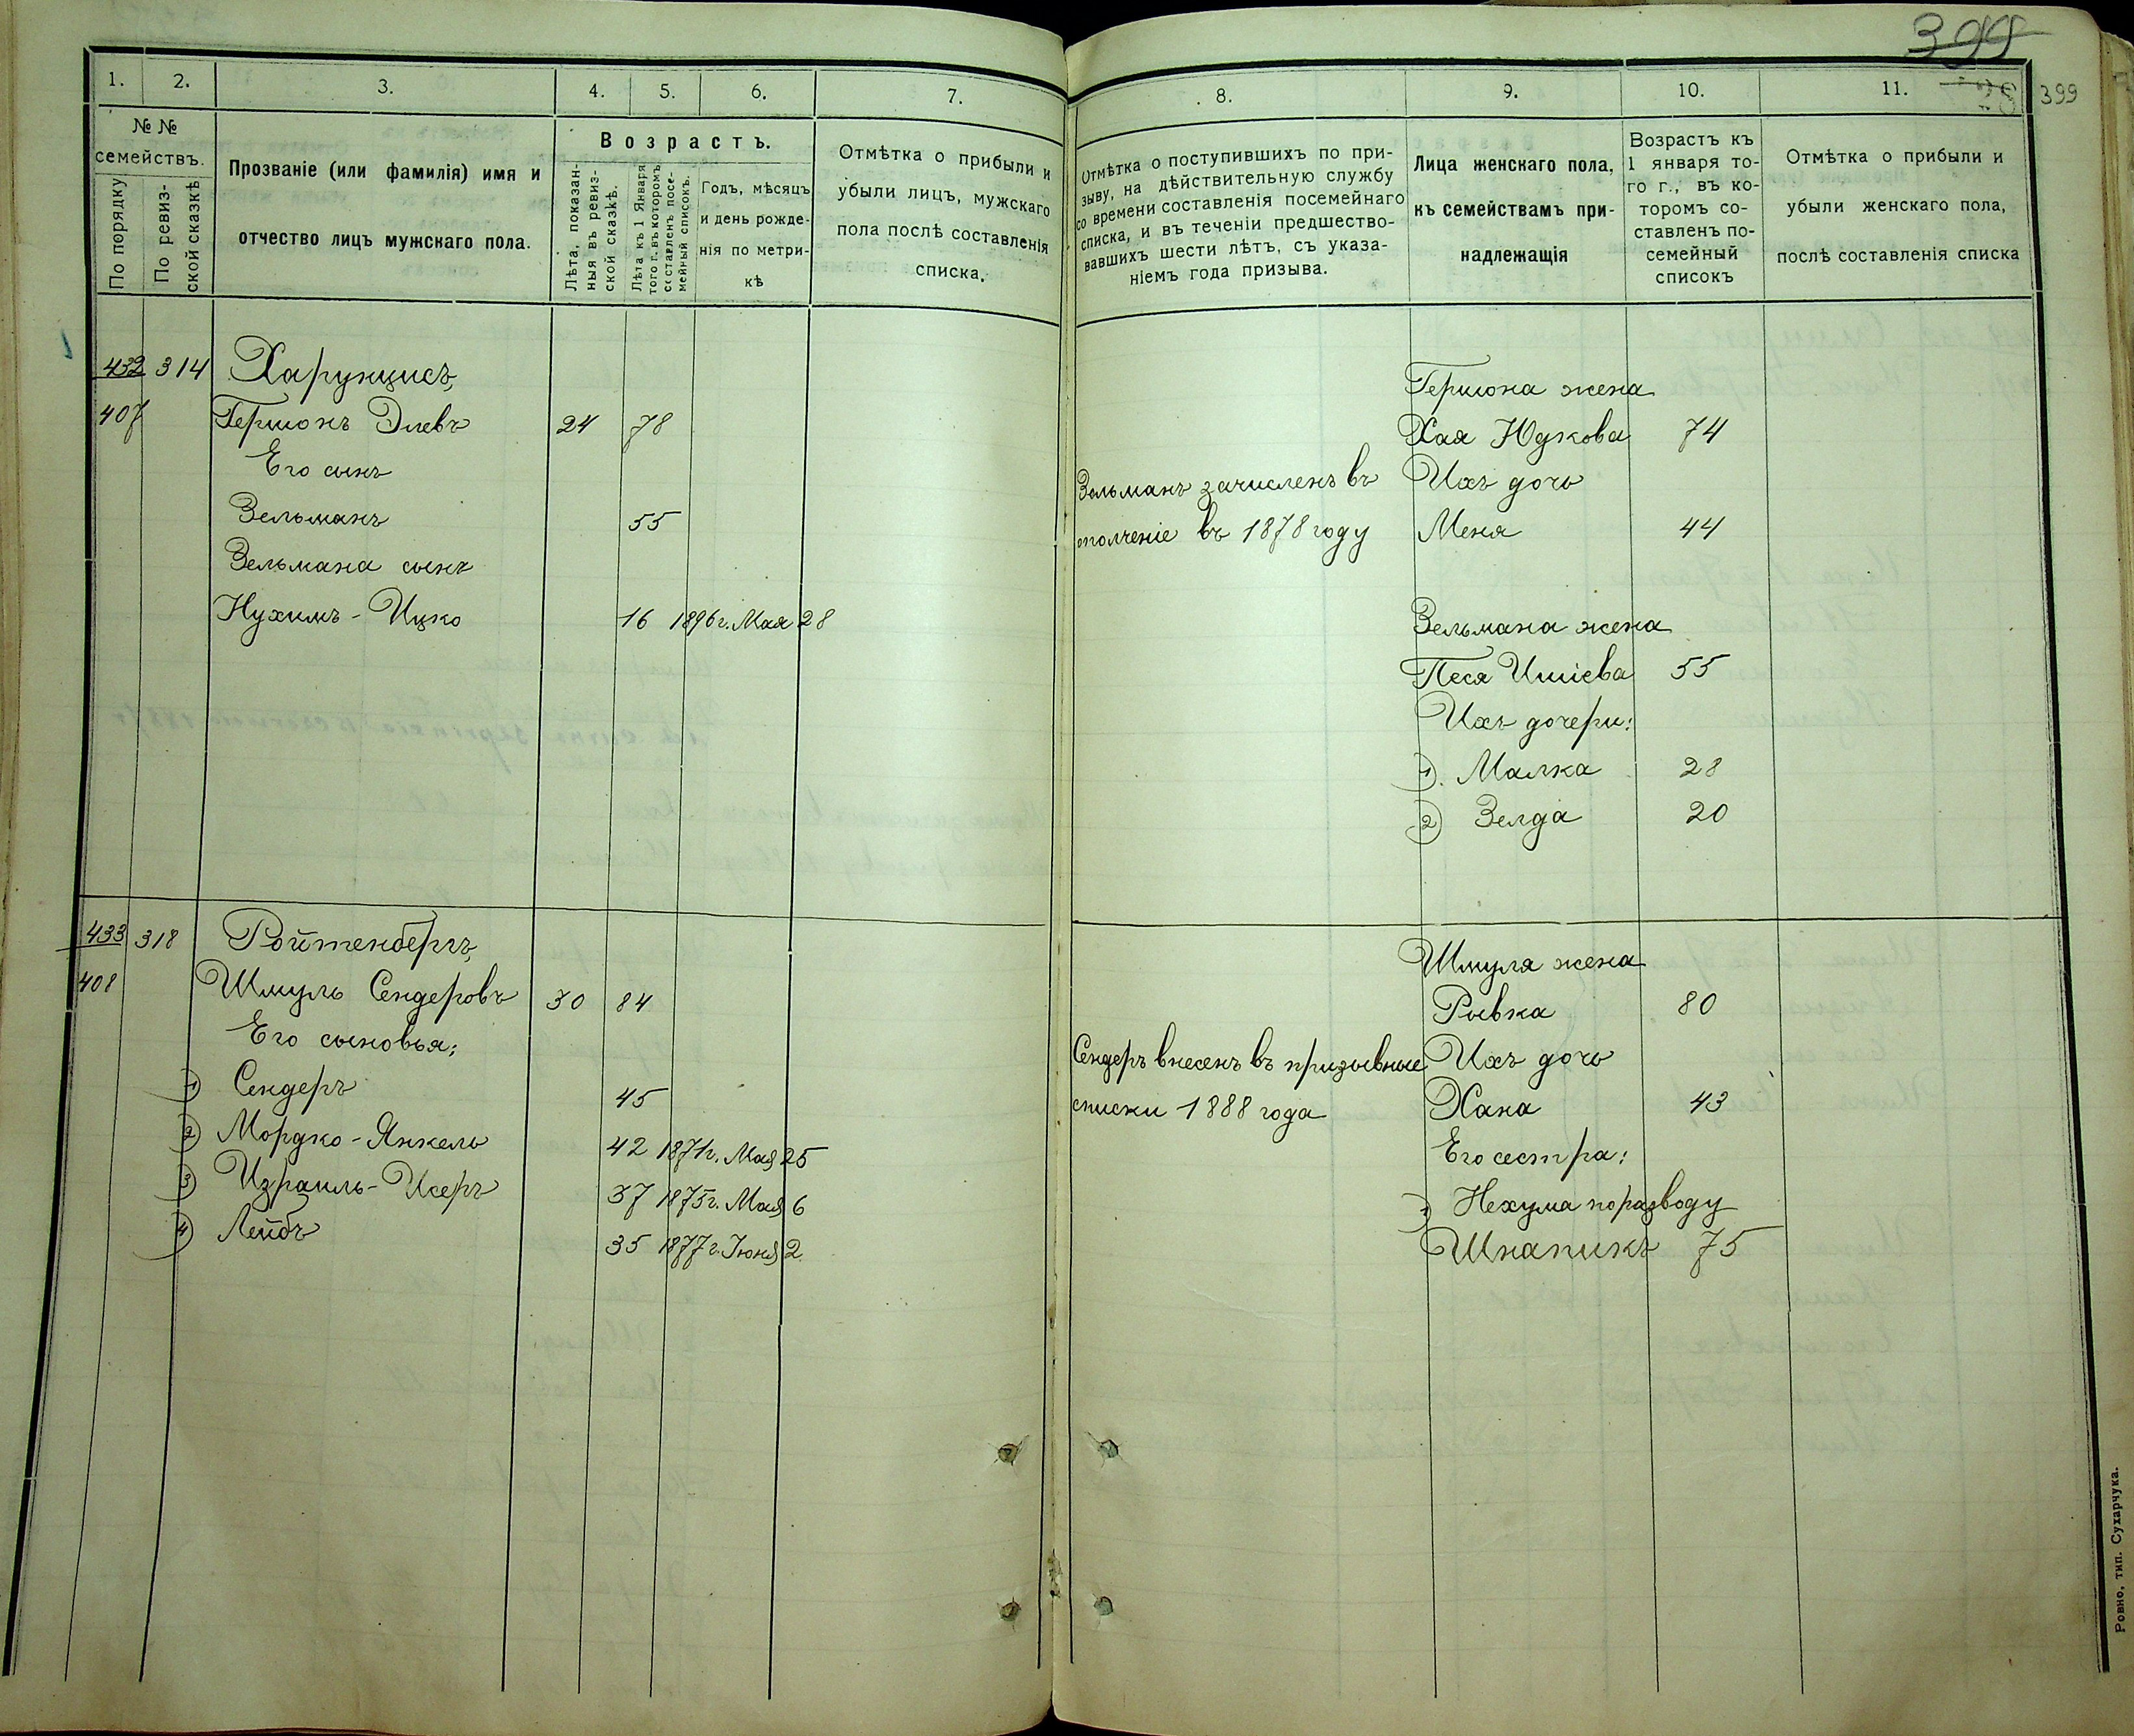 399
399
1. 2. 3. 4. 5. 6. 7.
№ №
семействъ.
По порядку
По ревиз-
ской сказкѣ
Прозваніе (или фамилія) имя и
отчество лицъ мужскаго пола.
Возрастъ.
Лѣта, показан-
ныя въ ревиз-
ской сказкѣ.
Лѣта къ 1 Января
того г. въ которомъ
составленъ посе-
мейный списокъ.
Годъ, мѣсяцъ
и день рожде-
нія по метри-
кѣ
Отмѣтка о прибыли и
убыли лицъ, мужскаго
пола послѣ составленія
списка.
432 314 Харунцисъ
407 Гершонъ Элевъ 24 78
Его сынъ
Зельманъ 55
Зельмана сынъ
Нухимъ-Ицко 16 1896 г. Мая 28
433 318 Ройтенбергъ
408 Шмуль Сендеровъ 30 84
Его сыновья:
1) Сендеръ 45
2) Мордко-Янкель 42 1871 г. Мая 25
3) Израиль-Исеръ 37 1875 г. Мая 6
4) Лейбъ 35 1877 г. Іюня 2
8. 9. 10. 11.
Отмѣтка о поступившихъ по при-
зыву, на дѣйствительную службу
со времени составленія посемейнаго
списка, и въ теченіи предшество-
вавшихъ шести лѣтъ, съ указа-
ніемъ года призыва.
Лица женскаго пола,
къ семействамъ при-
надлежащія
Возрастъ къ
1 января то-
го г., въ ко-
торомъ со-
ставленъ по-
семейный
списокъ
Отмѣтка о прибыли и
убыли женскаго пола,
послѣ составленія списка
Гершона жена
Хая Юдкова 74
Зельманъ зачисленъ въ Ихъ дочь
ополченіе въ 1878 году Меня 44
Зельмана жена
Песя Ишіева 55
Ихъ дочери:
1). Малка 28
2) Зелда 20
Шмуля жена
Рывка 80
Сендеръ внесенъ въ призывные Ихъ дочь
списки 1888 года Хана 43
Его сестра:
1) Нехума по разводу
Шнапикъ 75
Ровно, тип. Сухарчука.